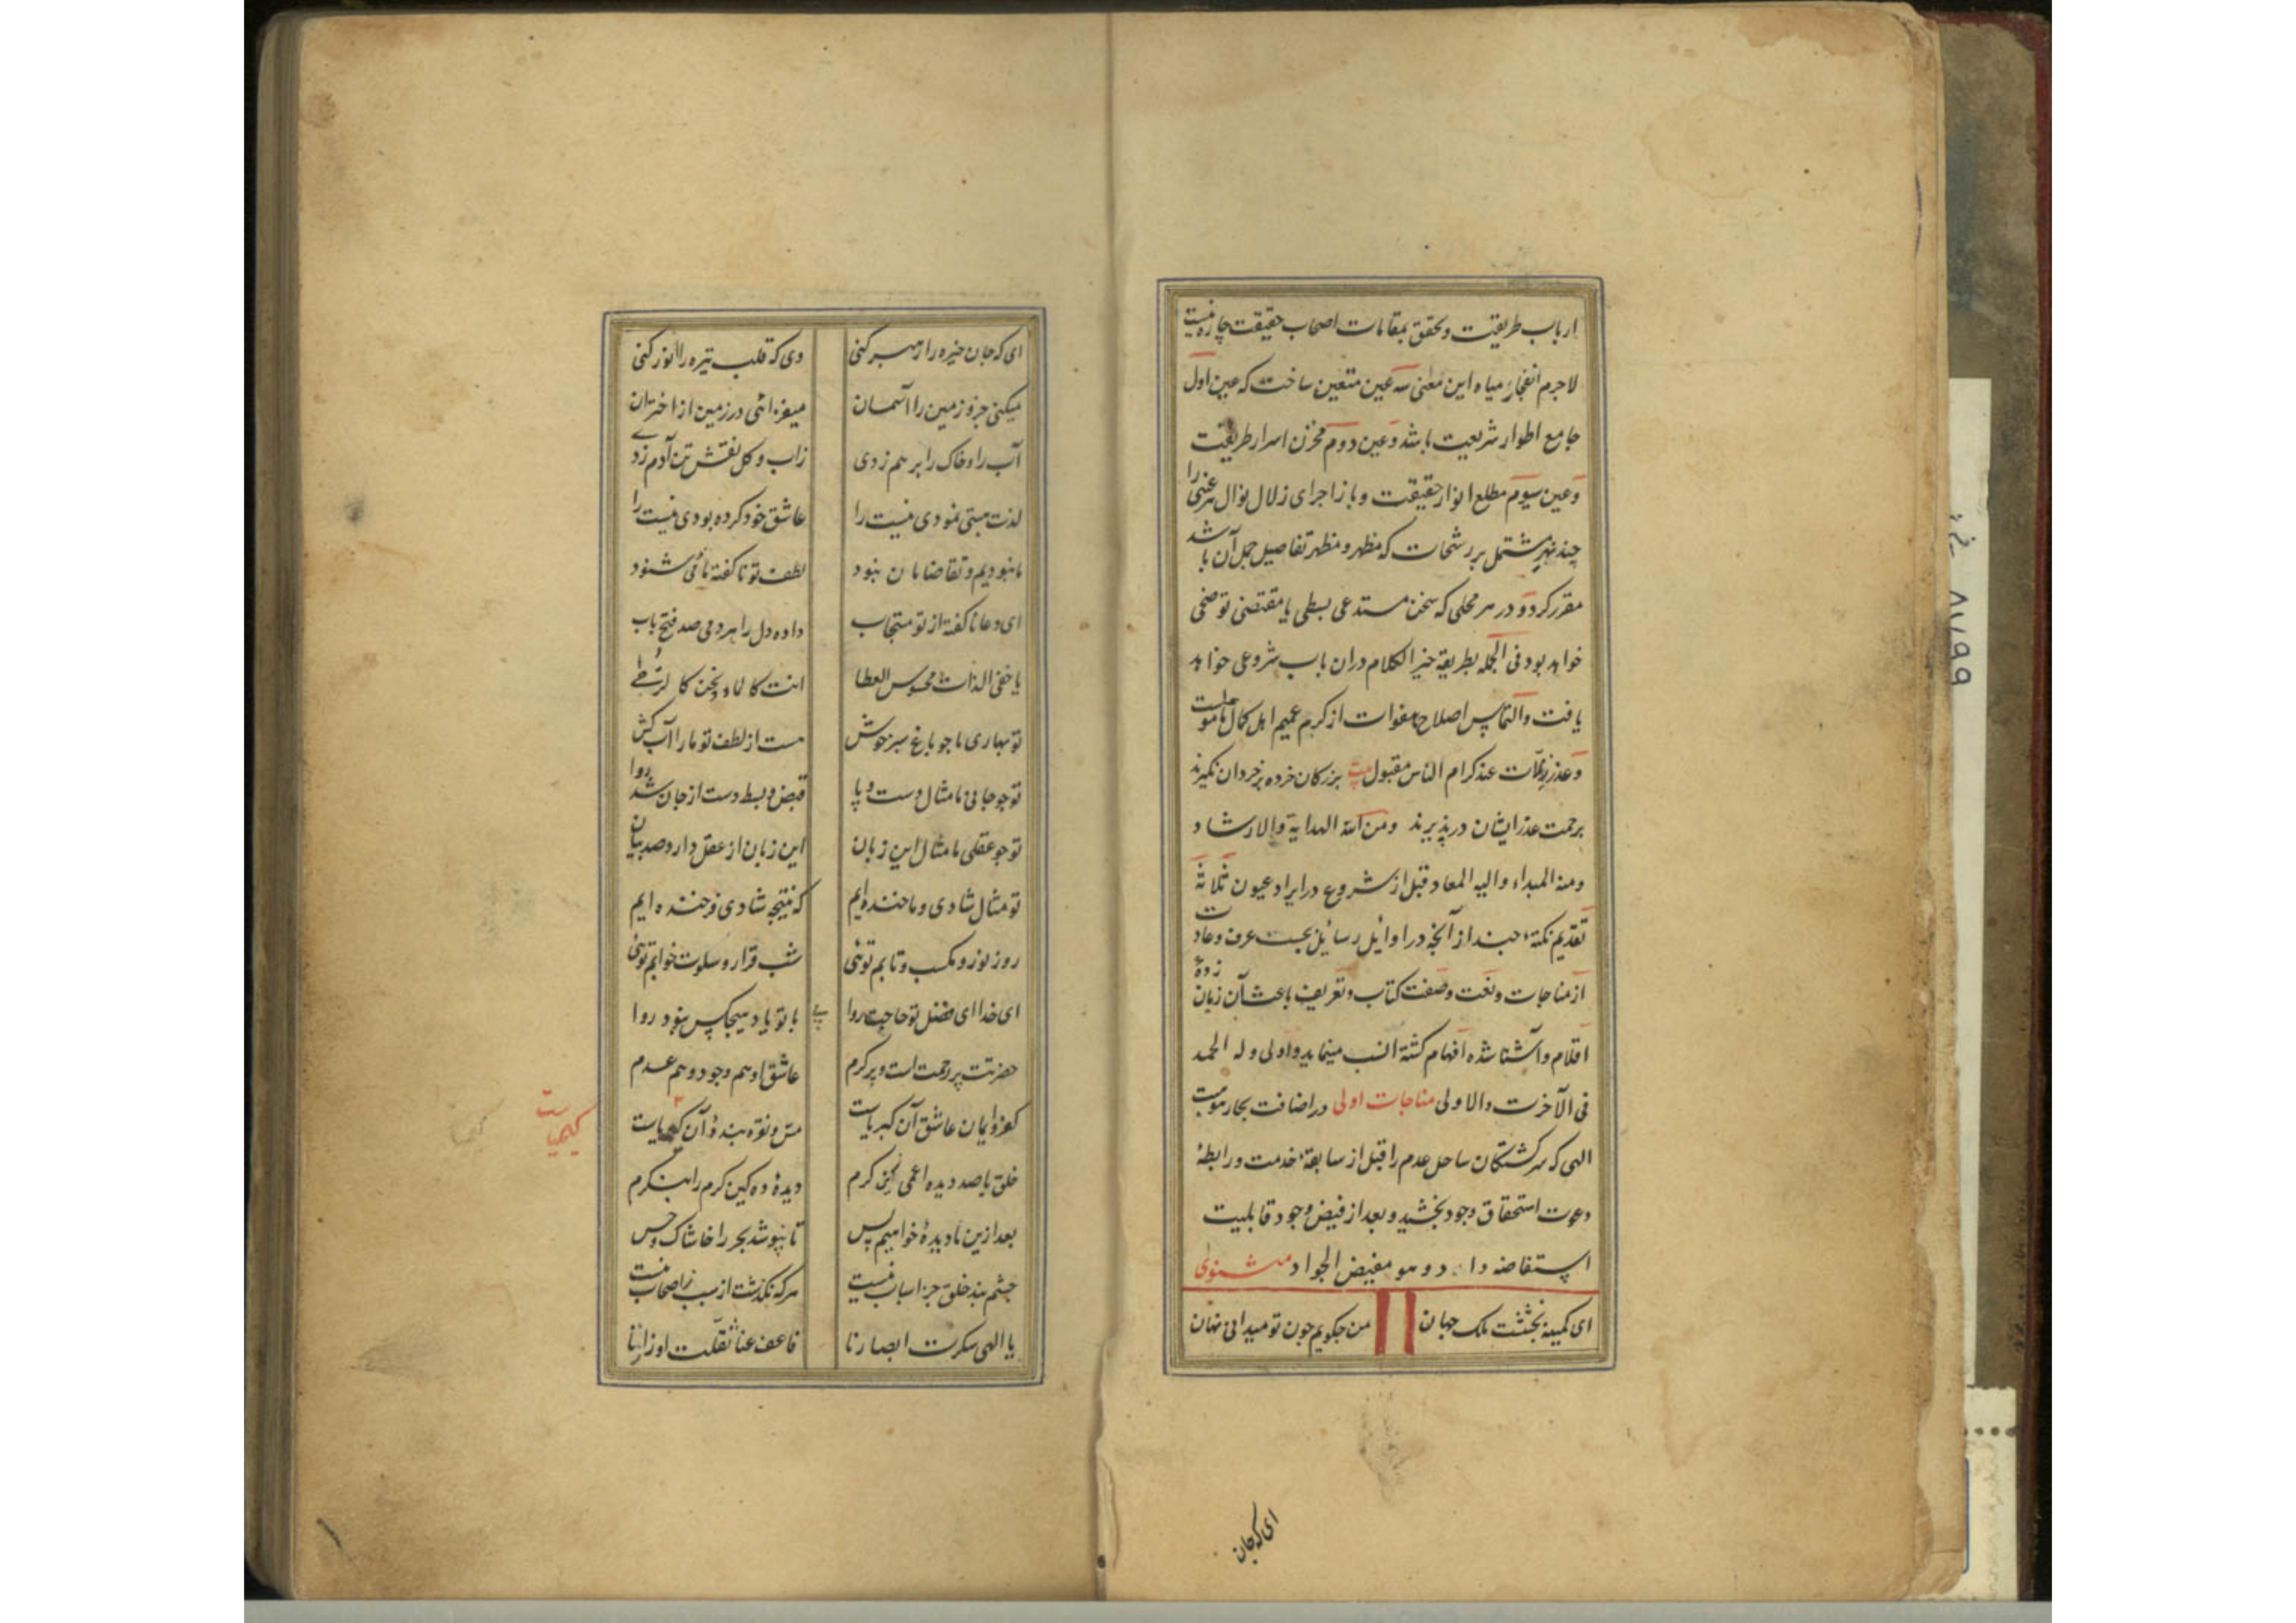 ارباب طریقت و تحقق بمقامات اصحاب حقیقت چاره نیست
لاجرم انفجار میاه این معنی سه عین متعین ساخت که عین اول
جامع اطوار شریعت باشد و عین دوم مخزن اسرار طریقت
و عین سیوم مطلع انوار حقیقت و باز اجرای زلال نوال هر عینی را
چند نهر مشتمل بر رشحات که مظهر و مظهر تفاصیل جمل آن باشد
مقرر کرد و در هر محلی که سخن مستدعی بسطی یا مقتضی توضیحی
خواهد بود فی الجمله بطریقه خیر الکلام دران باب شروعی خواهد
یافت و التماس اصلاح هفوات از کرم عمیم اهل کمال مامولست
و عذر زلات عند کرام الناس مقبول بیت بزرکان خرده بر خردان نکیرند
برحمت عذر ایشان درپذیرند ومن الله الهدایة والارشاد
ومنه المبداء والیه المعاد قبل از شروع در ایراد عیون ثلاثه
تقدیم نکتهٔ چند از آنچه در اوایل رسایل بحسب عرف و عادت
از مناجات و نعت و صفت کتاب و تعریف باعث آن زبان زده
اقلام و آشنا شده افهام کشته انسب مینماید و اولی وله الحمد
فی الآخرت والاولی مناجات اولی در اضافت بحار موهبت
الهی که سرکشتکان ساحل عدم را قبل از سابقهٔ خدمت و رابطهٔ
دعوت استحقاق وجود بخشید و بعد از فیض وجود قابلیت
استفاضه داد و هو مفیض الجواد مثنوی
ای کمینه بخششت ملک جهان من چکویم چون تو میدانی نهان
ای که جان
ای که جان خیره را رهبر کنی وی که قلب تیره را انور کنی
میکنی جزو زمین را آسمان میفزائی در زمین از اختران
آب را و خاک را بر هم زدی زاب و کل نقش تن آدم زدی
لذت هستی نمودی نیست را عاشق خود کرده بودی نیست را
ما نبودیم و تقاضامان نبود لطف تو ناکفته ما می شنود
ای دعا ناکفته از تو مستجاب داده دل را هر دمی صد فتح باب
یا خفی الذات محسوس العطا انت کالماء و نحن کالرحی
تو بهاری ما چو باغ سبز خوش هست از لطف تو ما را آب کش
تو چو جانی ما مثال دست و پا قبض و بسط دست از جان شد روا
تو چو عقلی ما مثال این زبان این زبان از عقل دارد صد بیان
تو مثال شادی و ما خنده ایم که نتیجه شادی فرخنده ایم
روز نوز و مکسب و تابم توئی شب قرار و سلوت خوابم توئی
ای خدا ای فضل تو حاجت روا با تو یاد هیچکس نبود روا
حضرتت پر رحمت است و پر کرم عاشق او هم وجود و هم عدم
کفر و ایمان عاشق آن کبریاست مس و نقره بندهٔ آن کیمیاست
کیمیاست
خلق با صد دیده اعمی کین کرم دیدهٔ ده کین کرم را بنکرم
بعد ازین نادیدهٔ خواهیم پس تا نپوشد بحر را خاشاک و خس
چشم بند خلق جز اسباب نیست هرکه نکذشت از سبب ز اصحاب نیست
یا الهی سکرت ابصارنا فاعف عنا ثقلت اوزارنا
۸۷۹۹